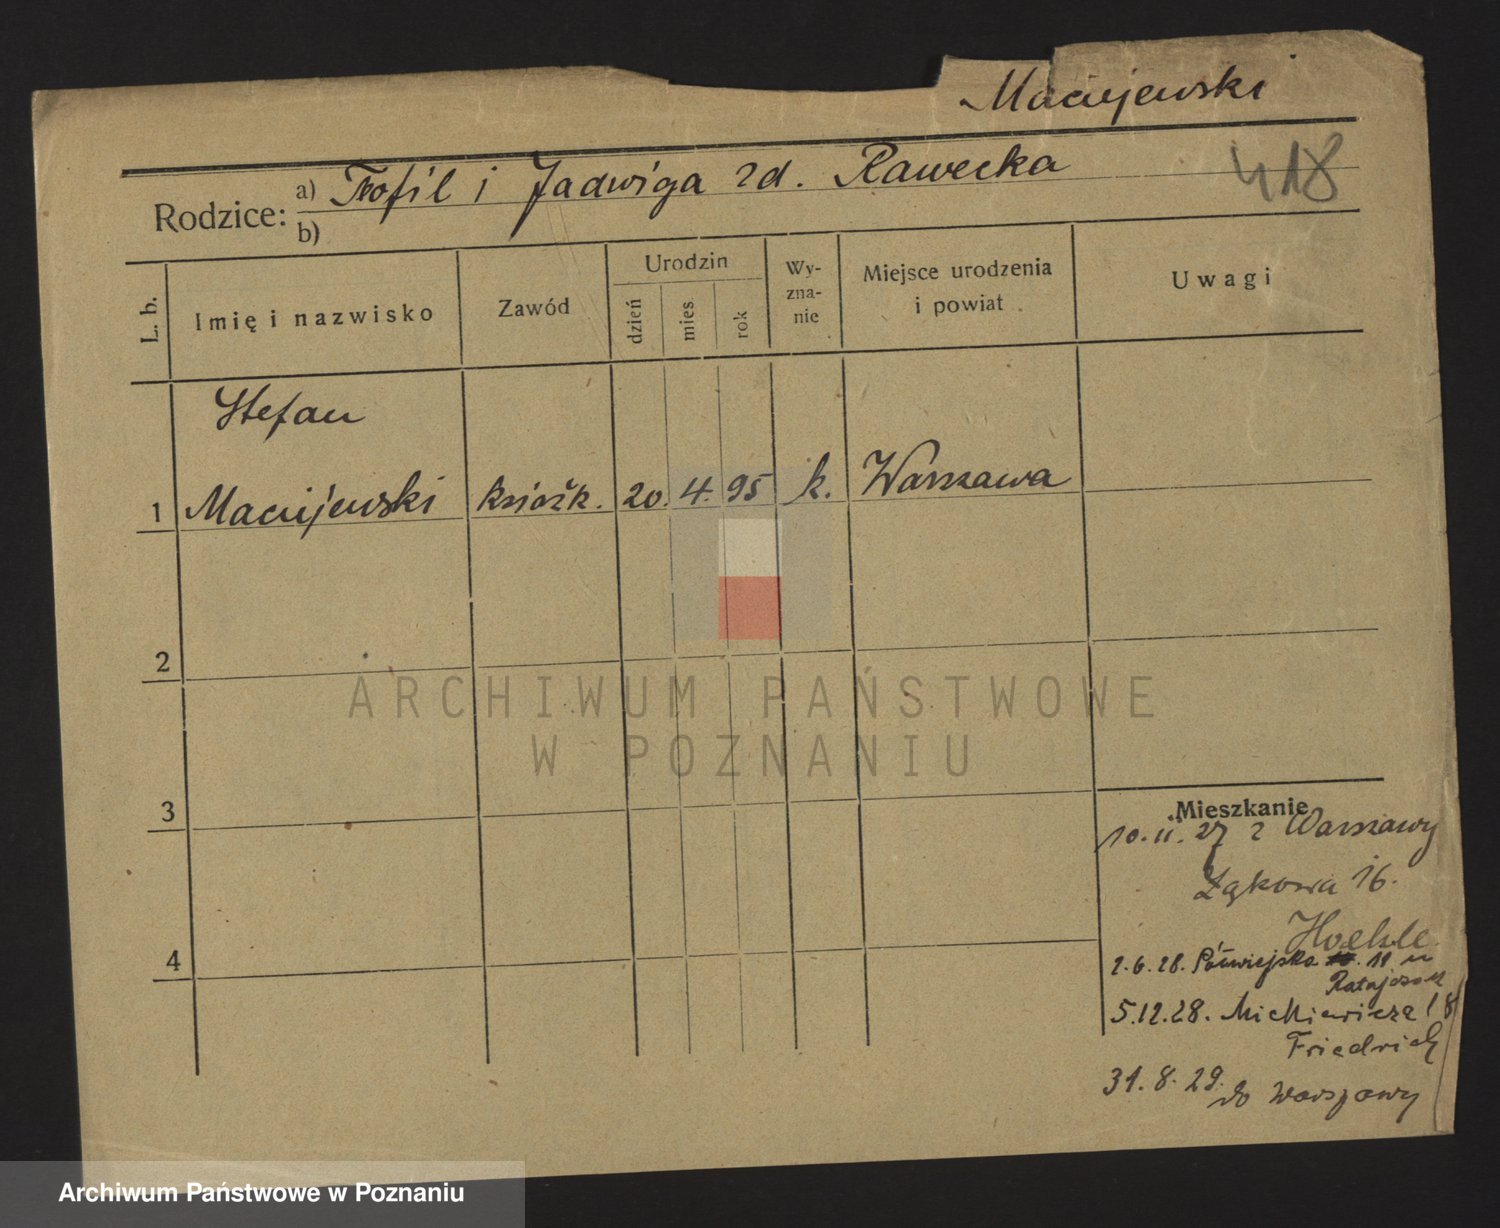 Maciejewski
418
a) Teofil i Jadwiga zd. Rawecka
Rodzice:
b)
L. b.
Imię i nazwisko
Zawód
Urodzin
dzień
mies
rok
Wy-
zna-
nie
Miejsce urodzenia
i powiat
Uwagi
Stefan
1 Maciejewski książk. 20. 4. 95 k. Warszawa
2
3
4
Mieszkanie
10.11.27 z Warszawy
Łąkowa 16.
2.6.28. Półwiejska 19 u
Ratajczak
5.12.28. Mickiewicza 18
Friedrich
31.8.29. do Warszawy
ARCHIWUM PAŃSTWOWE
W POZNANIU
Archiwum Państwowe w Poznaniu